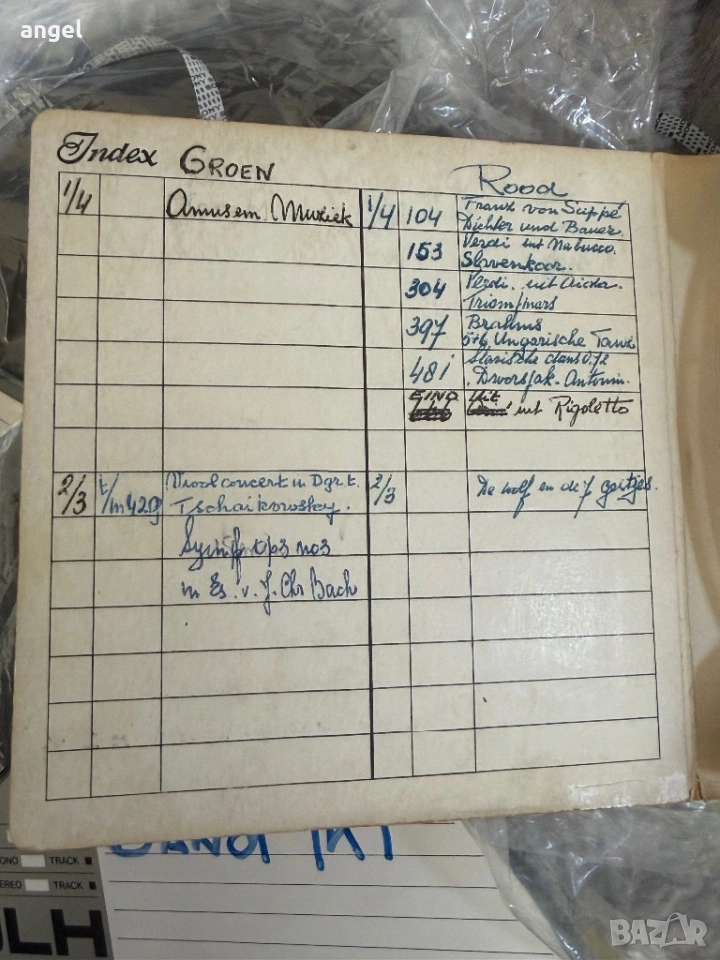 angel
Index GROEN
Rood
1/4 Amusem. Muziek
1/4 104 Franz von Suppé
Dichter und Bauer.
153 Verdi uit Nabucco.
Slavenkoor.
304 Verdi. uit Aida.
Triomfmars
397 Brahms
5+6 Ungarische Tanz
481 Slavische dans 0.72
Dvorsjak - Antonin.
EIND Uit
uit Rigoletto
2/3 t/m 429 Vioolconcert in Dgr. t.
Tschaikorosky.
Symf ops no3
in Es. v. J. Chr Bach
2/3 De wolf en de 7 geitjes.
BAND
MONO TRACK
STEREO TRACK
LH
BAZAR